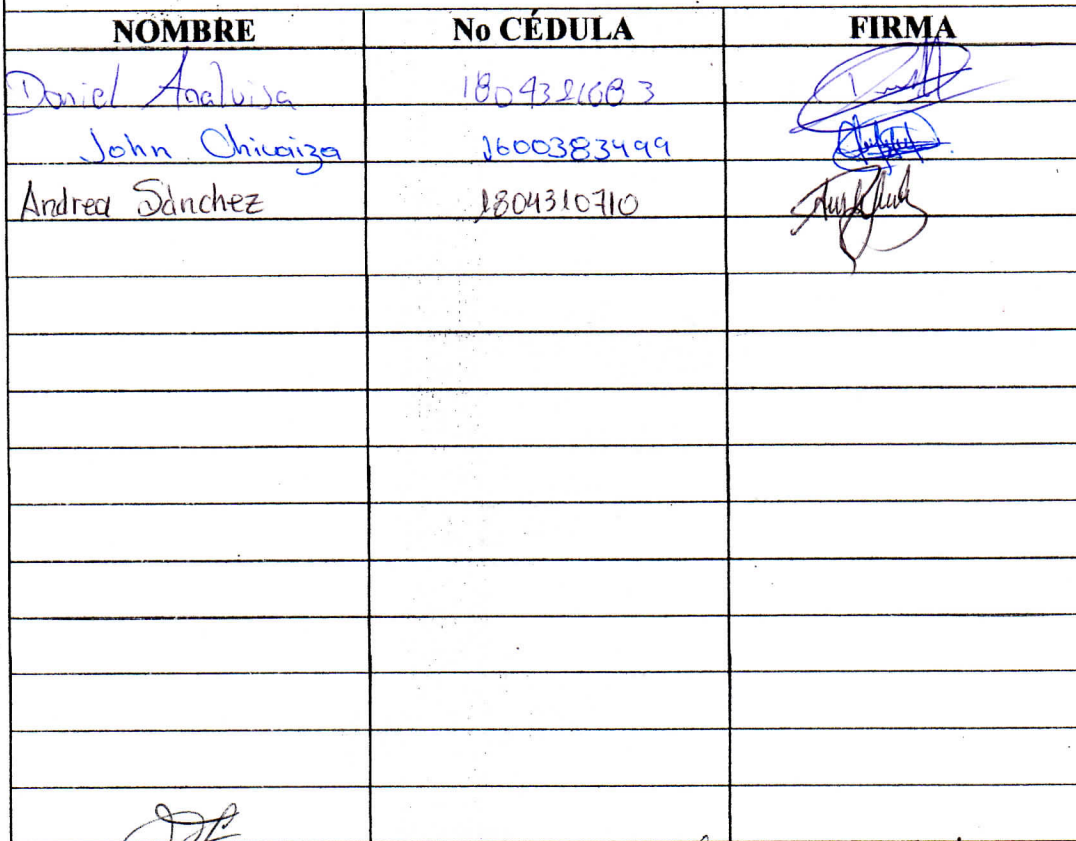 NOMBRE No CÉDULA FIRMA
Daniel Analuisa
John Chicaiza 1600383499
Andrea Sánchez 1804310710